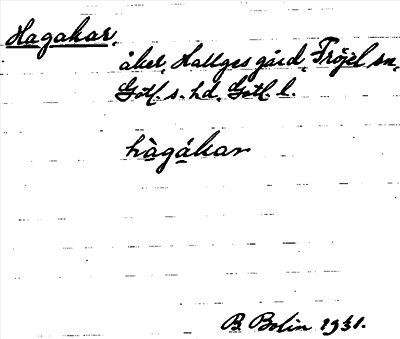 Hagakar,
åker, Hallges gård, Fröjel sn,
Gotl. s. hd, Gotl. l.
hàgákar
B Bolin 1931.